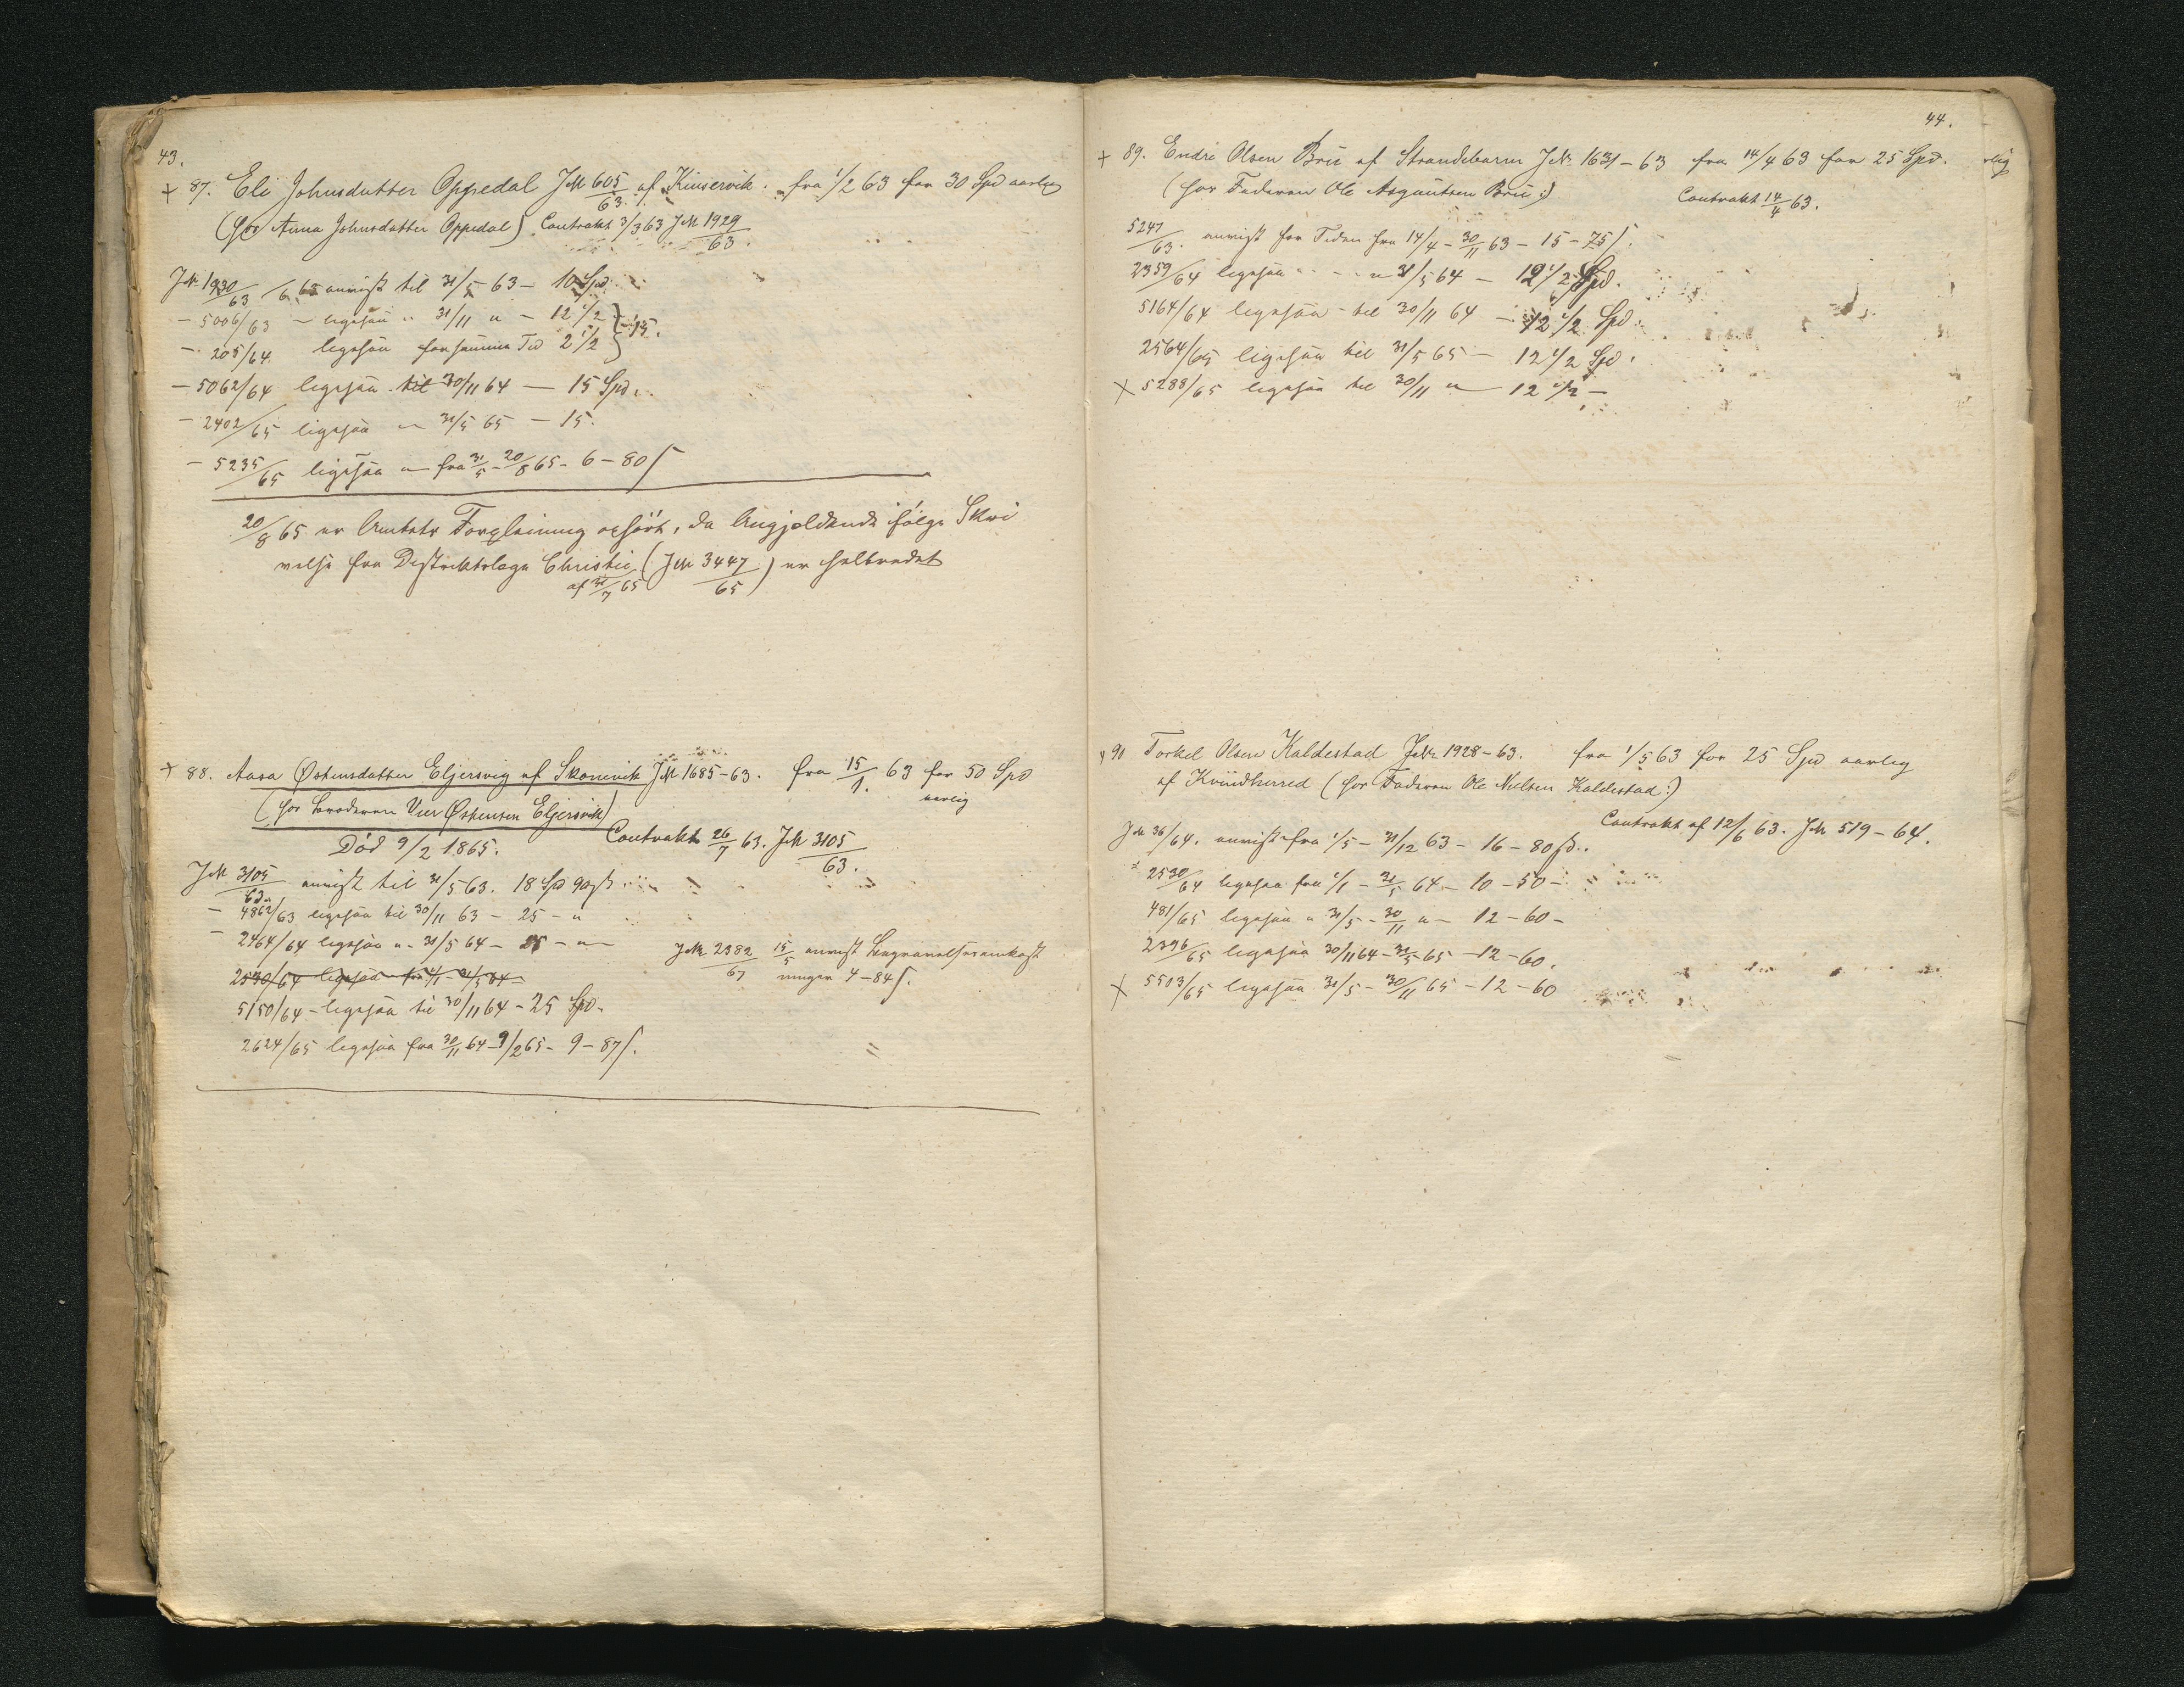 43.
+ 87. Eli Johnsdatter Oppedal J№ 605/63 af Kinservik. fra 1/2 63 for 30 Spd aarlig
(hos Anna Johnsdatter Oppedal) Contrakt 3/3 63 J№ 1929/63.
J№ 1930/63 anvist til 31/5 63 – 10 Spd.
– 5006/63 – ligesaa " 31/11 " – 12 1/2 } 15.
– 205/64 ligesaa for samme Tid 2 1/2
– 5062/64 ligesaa til 30/11 64 – 15 Spd.
– 2402/65 ligesaa – 31/5 65 – 15.
– 5235/65 ligesaa – fra 31/5 – 20/8 65 – 6 – 80 ß
20/8 65 er Amtets Forpleining ophört, da Angjeldende ifölge Skri
velse fra Distriktslæge Christie (J№ 3447/65) er helbredet
af 31/7 65
+ 88. Aasa Østensdatter Eljersvig af Skonevik J№ 1685–63. fra 15/1. 63 for 50 Spd
aarlig
(hos Broderen Østensen Eljersvik)
Contrakt 26/7 63. J№ 3105/63.
Död 9/2 1865.
J№ 3105/63 anvist til 31/5 63. 18 Sp 90 ß
– 4862/63 ligesaa til 30/11 63 – 25 – "
– 2464/64 ligesaa " 31/5 64 – 25 – "
J№ 2382/67 15/5 anvist Begravelsesomkost
ninger 4–84 ß.
2530/64 ligesaa fra 1/1 – 31/5 64 –
5150/64 – ligesaa til 30/11 64 – 25 Spd.
2624/65 ligesaa fra 30/11 64 – 9/2 65 – 9 – 87 ß.
44.
+ 89. Endre Olsen Brii af Strandebarm J№ 1631–63 fra 14/4 63 for 25 Spd. rlig
(hos Faderen Ole Asgautsen Brii:)
Contrakt 14/4 63.
5247/63. anvist for Tiden fra 14/4 – 30/11 63 – 15 – 75 ß.
2359/64 ligesaa – – " 31/5 64 – 12 1/2 Spd.
5164/64 ligesaa – til 30/11 64 – 12 1/2 Spd.
2564/65 ligesaa til 31/5 65 – 12 1/2 Spd.
+ 5288/65 ligesaa til 30/11 " – 12 1/2 –
+ 90 Torkel Olsen Kaldestad J№ 1928–63. fra 1/5 63 for 25 Spd aarlig
af Kvindherred (hos Faderen Ole Nielsen Kaldestad:)
Contrakt af 12/6 63. J№ 519–64.
J№ 36/64. anvist fra 1/5 – 31/12 63 – 16 – 80 ß.
2530/64 ligesaa fra 1/1 – 31/5 64 – 10 – 50 –
481/65 ligesaa " 31/5 – 30/11 " – 12 – 60 –
2396/65 ligesaa 30/11 64 – 31/5 65 – 12 – 60.
+ 5503/65 ligesaa 31/5 – 30/11 65 – 12 – 60